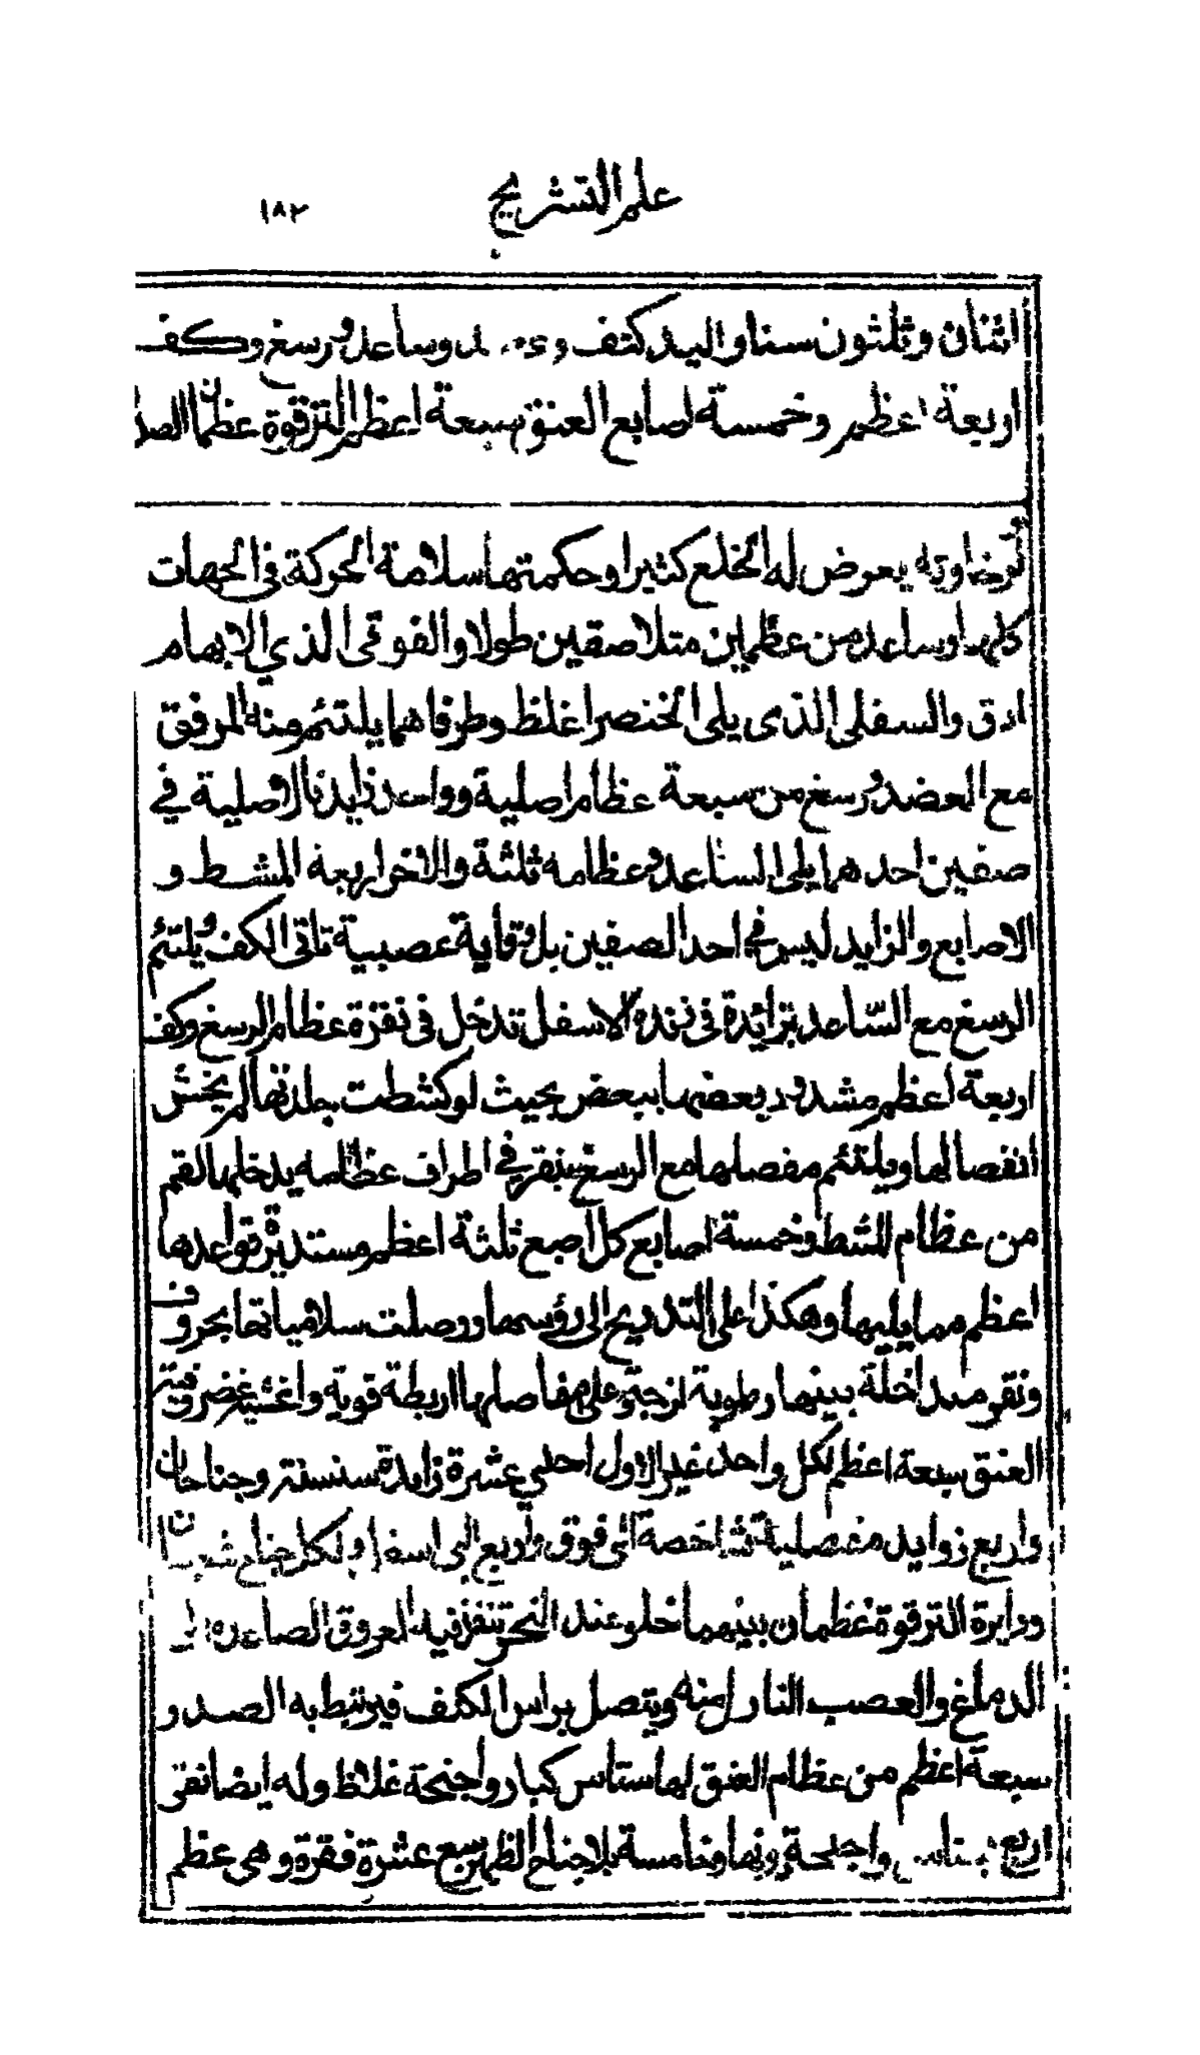 علم التشريح ١٨٢
اثنان وثلثون سنا واليد كتف وساعد ورسغ وكف
اربعة اعظم وخمسة اصابع العنق سبعة اعظم الترقوة عظمان الصد
يعرض له الخلع كثيرا وحكمتها سلامة الحركة في الجهات
كلها وساعد من عظمين متلاصقين طولا والفوقى الذي الابهام
ادق والسفلى الذى يلى الخنصر اغلظ وطرفاهما يلتئم منه المرفق
مع العضد ورسغ من سبعة عظام اصلية وواحد زايد الاصلية في
صفين احدهما يلى الساعد وعظامه ثلثة والاخر اربعة المشط و
الاصابع والزايد ليس في احد الصفين بل وقاية عصبية تاتى الكف ويلتئم
الرسغ مع الساعد بزائدة فى زنده الاسفل تدخل فى نقرة عظام الرسغ وكف
اربعة اعظم مشدود بعضها ببعض بحيث لو كشطت جلدتها لم يخش
انفصالها ويلتئم مفصلها مع الرسغ بنقر في اطراف عظامه يدخلها القم
من عظام المشط وخمسة اصابع كل اصبع ثلثة اعظم مستديرة قواعدها
اعظم مما يليها وهكذا على التدريج الى رؤسها ووصلت سلامياتها بحروف
ونقر متداخلة بينها رطوبة لزجة وعلى مفاصلها اربطة قوية واغشية غضروفية
العنق سبعة اعظم لكل واحد غير الاول احدي عشرة زايدة سنسنة وجناحان
واربع زوايد مفصلية شاخصة الى فوق واربع الى اسفل ولكل جناح شعبتان
ودايرة الترقوة عظمان بينهما خلو عند النحر تنفذ فيه العروق الصاعدة
الدماغ والعصب النازل منه ويتصل براس الكتف فيرتبط به الصدر
سبعة اعظم من عظام العنق لها سناسن كبار واجنحة غلاظ وله ايضا نقر
اربع واجنحة وخامسة بلا جناح الظهر سبع عشرة فقرة وهى عظم